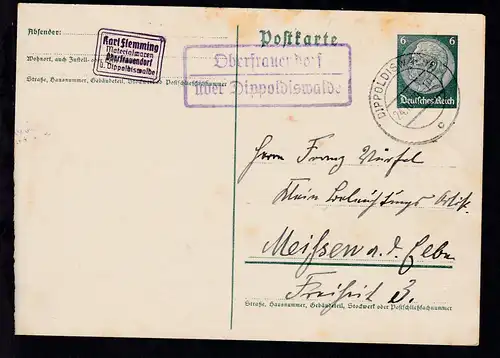 Absender:
Karl Flemming
Materialwaren
Oberfrauendorf
ü. Dippoldiswalde
Wohnort, auch Zustell-
Straße, Hausnummer, Gebäudeteil, Stockwerk od. Postschließfachnummer
Postkarte
Oberfrauendorf
über Dippoldiswalde
6 6
Deutsches Reich
DIPPOLDISWALDE
c
Herrn Franz
Meißen a. d. Elbe
Freiheit 3.
Straße, Hausnummer, Gebäudeteil, Stockwerk oder Postschließfachnummer